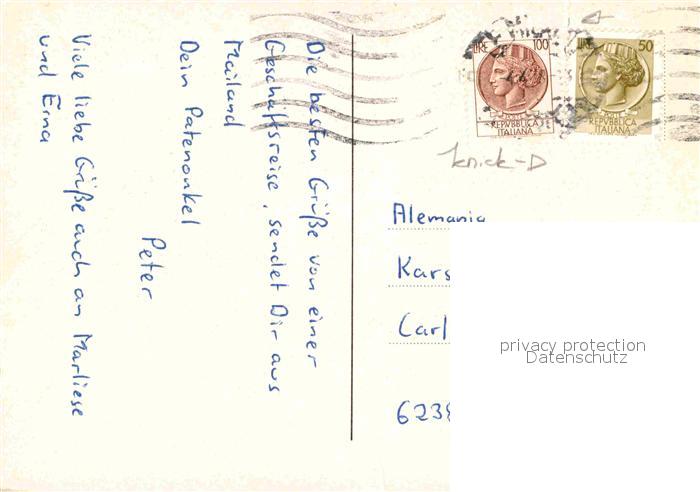 Die besten Grüße von einer
Geschäftsreise, sendet Dir aus
Mailand
Dein Patenonkel
Peter
Viele liebe Grüße auch an Marliese
und Erna
LIRE 100
POSTE
REPVBBLICA
ITALIANA
LIRE 50
POSTE
REPVBBLICA
ITALIANA
Knick-D
Alemania
Kars
Carl
6238
privacy protection
Datenschutz